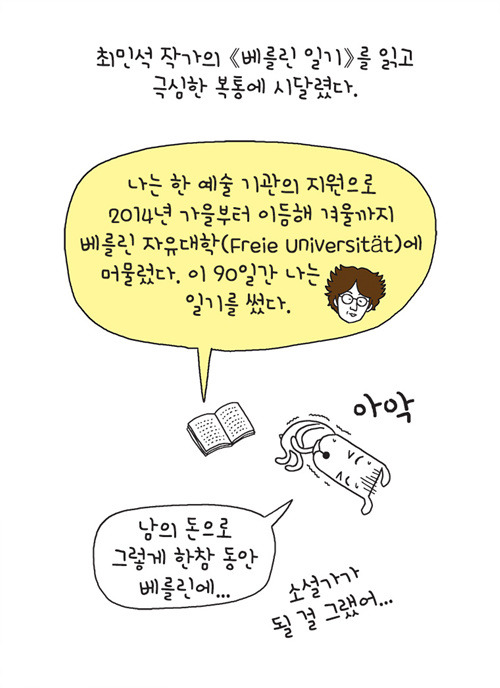 최민석 작가의 《베를린 일기》를 읽고
극심한 복통에 시달렸다.
나는 한 예술 기관의 지원으로
2014년 가을부터 이듬해 겨울까지
베를린 자유대학(Freie Universität)에
머물렀다. 이 90일간 나는
일기를 썼다.
아악
남의 돈으로
그렇게 한참 동안
베를린에...
소설가가
될 걸 그랬어...